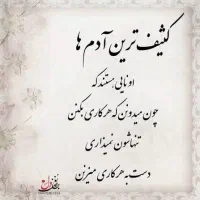 کثیف ترین آدم ها
اونایی هستند که
چون میدونن که هر کاری بکنن
تنهاشون نمیذاری
دست به هر کاری میزنن